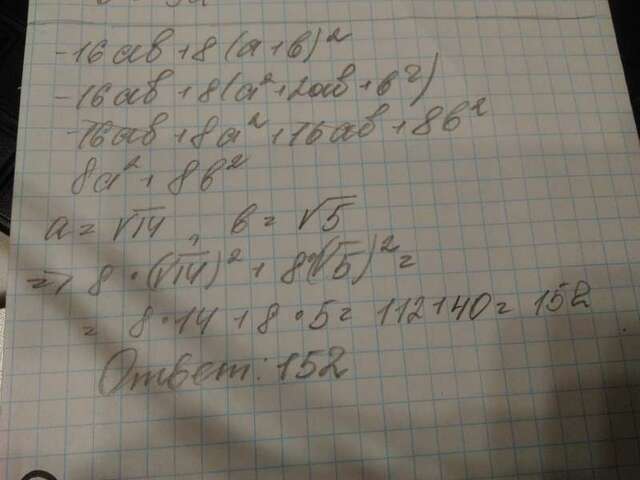 -16ab+8(a+b)²
-16ab+8(a²+2ab+b²)
-16ab+8a²+16ab+8b²
8a²+8b²
a=√14, b=√5
=> 8·(√14)²+8·(√5)²=
= 8·14+8·5=112+40=152
Ответ: 152